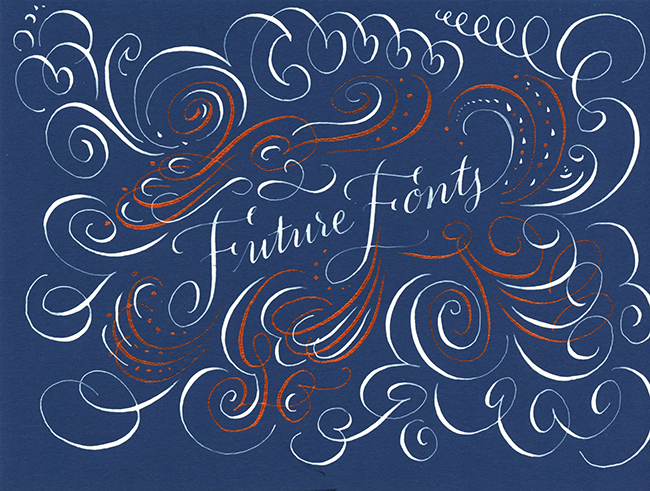 Future Fonts